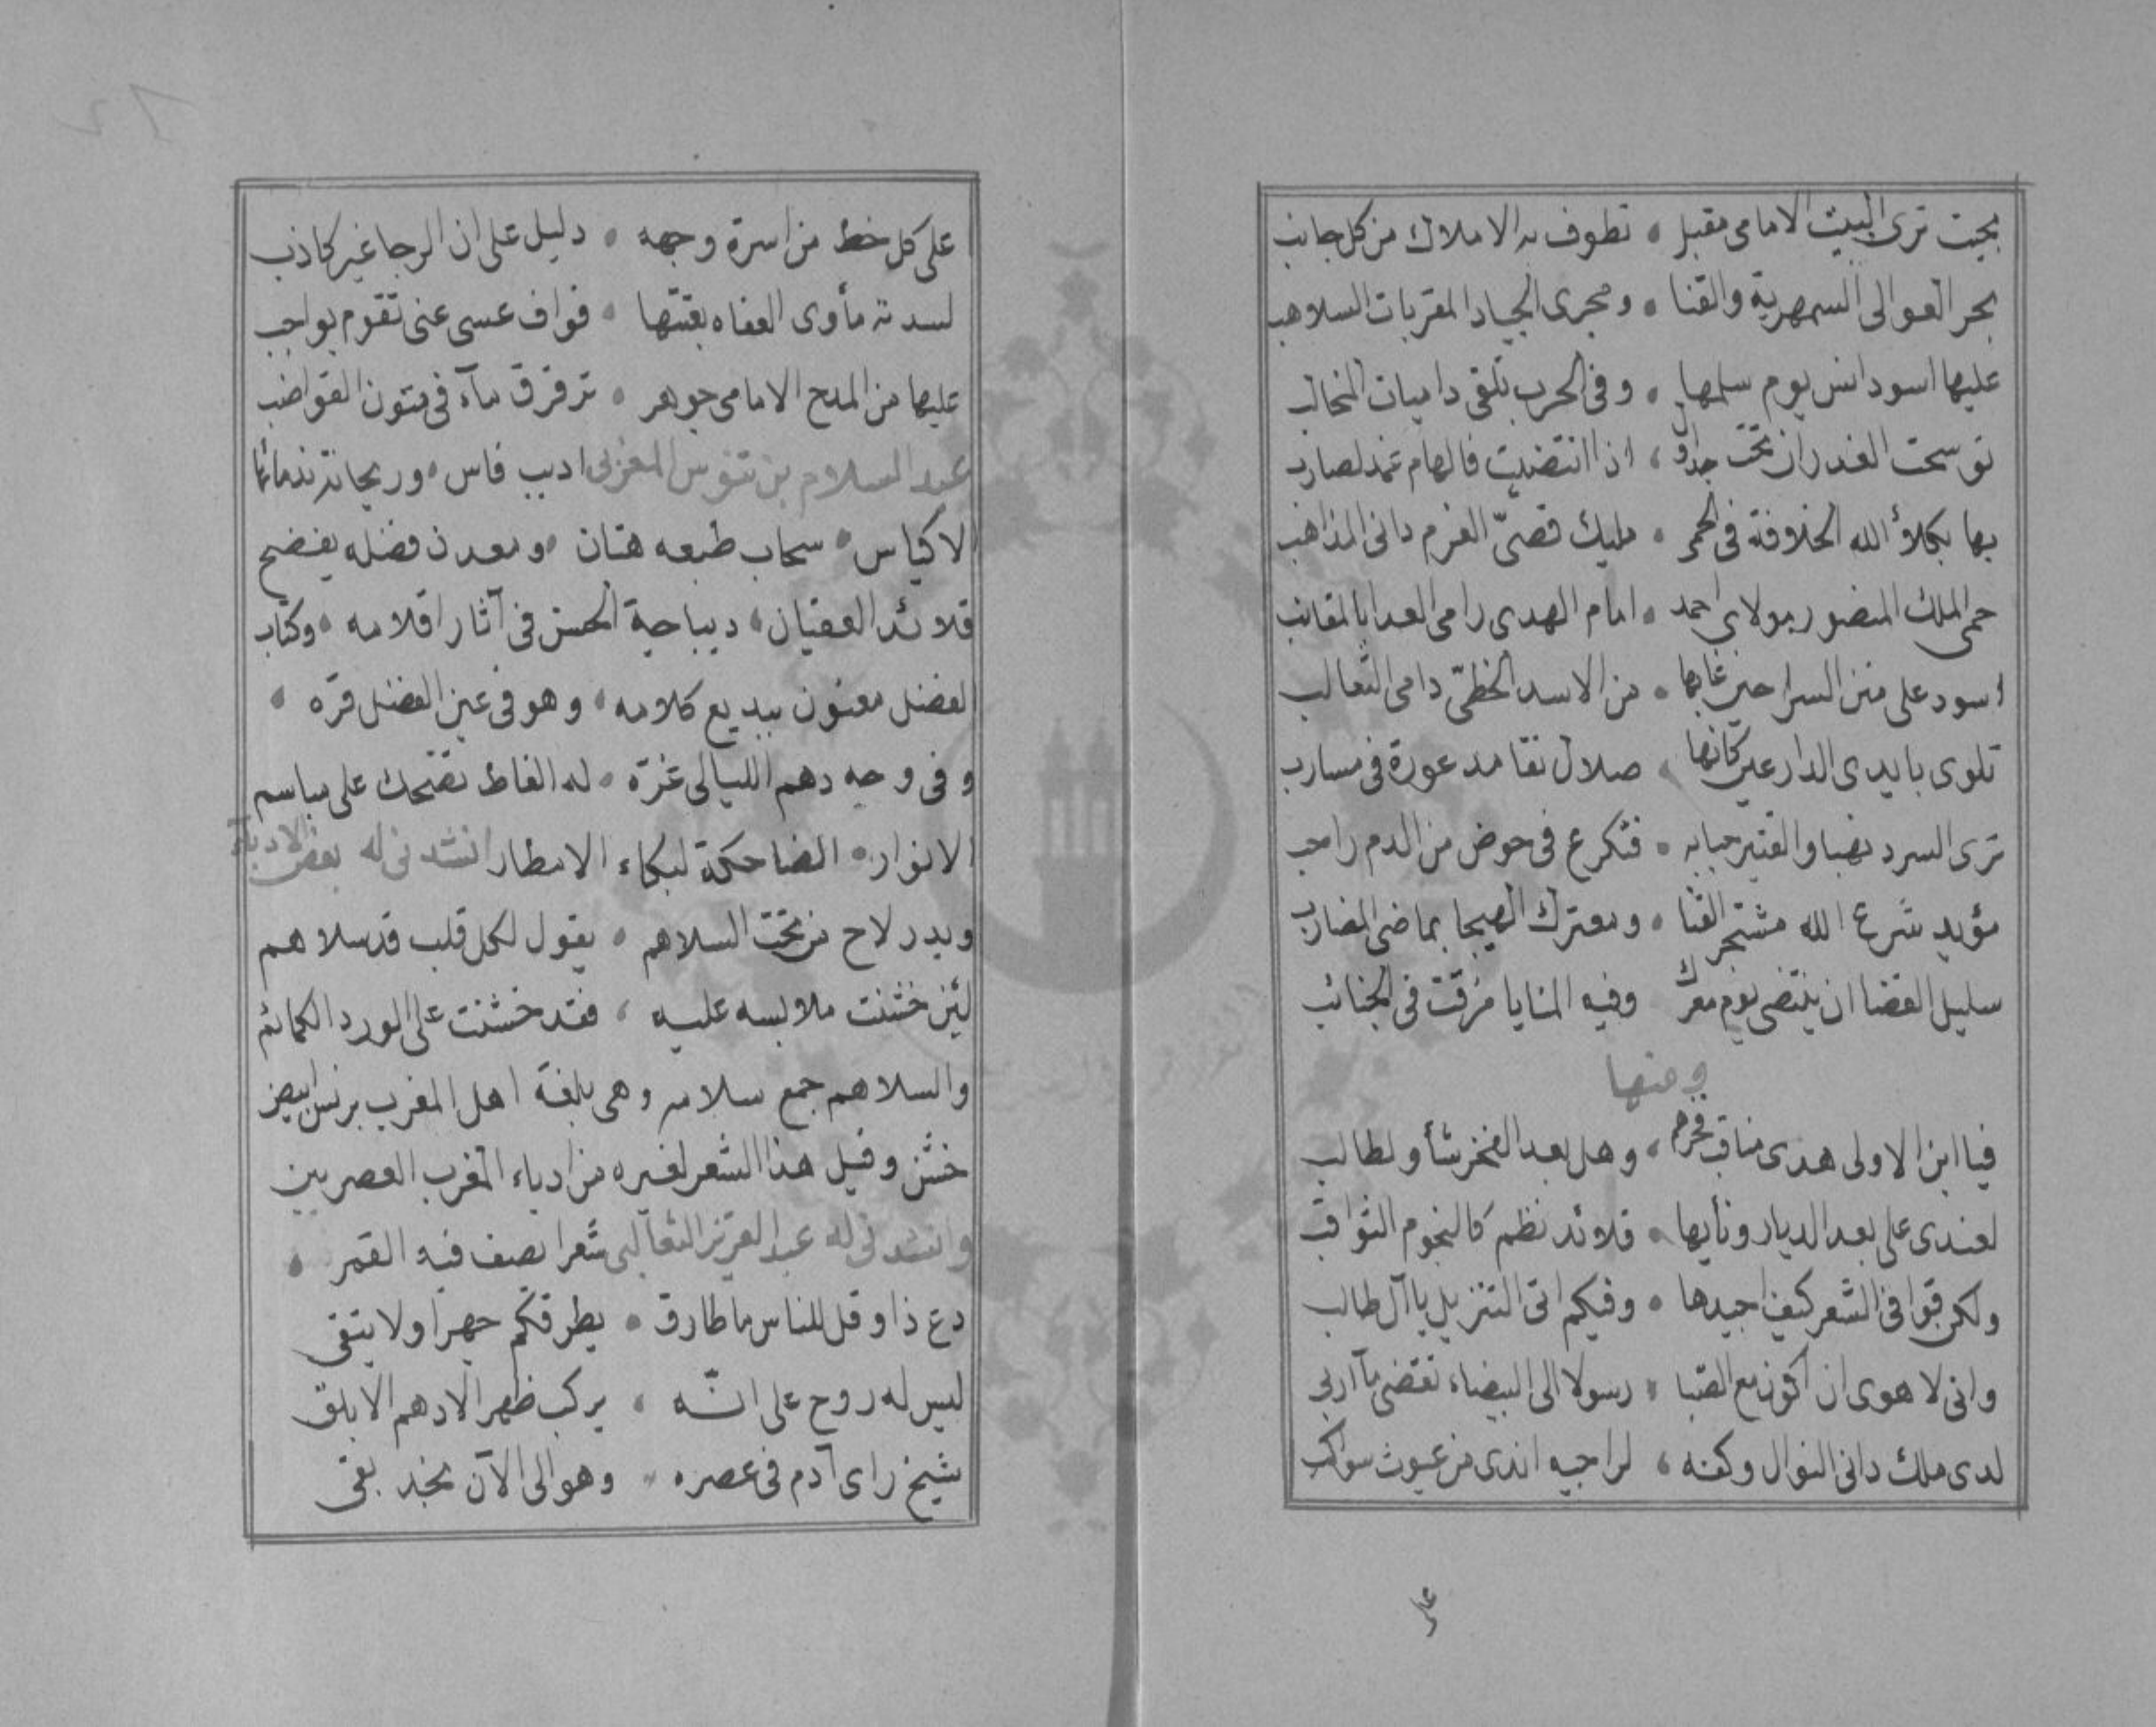 بحيث ترى البيت الامامى مقبل • تطوف به الاملاك من كل جانب
بحر العوالى السمهرية والقنا • ومجرى الجياد المقربات السلاهب
عليها اسود انس يوم سلمها • وفى الحرب تلقى داميات المخالب
توسحت الغدران تحت جداول ، اذا انتضيت فالهام غمد لضارب
بها يكلأ الله الخلافة فى الحمى • مليك قصىّ العزم دانى المذاهب
حمى الملك المنصور مولاى احمد • امام الهدى رامى العدا بالمقانب
اسود على متن السراحين غابها • من الاسد الخطىّ دامى الثعالب
تلوى بايدى الدارعين كأنها • صلال نقا مدعورة فى مسارب
ترى السرد نضبا والقتير حبابه • فتكرع فى حوض من الدم راحب
مؤيد شرع الله مشتجر القنا • ومعترك الهيجا بماضى المضارب
سليل القضا ان ينتضى يوم معرك وفيه المنايا مزقت فى الجنائب
ومنها
فيا ابن الاولى هذى مناقب فخرهم ، وهل بعد الفخر شأو لطالب
لعندى على بعد الديار ونأيها • قلائد نظم كالنجوم الثواقب
ولكن قوافى الشعر كيف اجيدها • وفيكم اتى التنزيل يا آل طالب
وانى لا هوى ان أكون مع الصبا • رسولا الى البيضاء تقضى مآربى
لدى ملك دانى النوال وكفه ، لراجيه اندى من غيوث سواكب
على
على كل خط من اسرة وجهه • دليل على ان الرجا غير كاذب
لسدته مأوى العفاه بعثتها • قواف عسى عنى تقوم بواجب
عليها من المدح الامامى جوهر • ترقرق مآء فى متون القواضب
عبد السلام بن المغربى اديب فاس • وريحانة ندمائنا
الاكياس • سحاب طبعه هتان • ومعدن فضله يفضح
قلائد العقيان • ديباجة الحسن فى آثار اقلامه • وكتاب
الفضل معنون ببديع كلامه • وهو فى عين الفضل قرّه •
وفى وجه دهم الليالى غرّه • له الفاظ تضحك على مباسم
الانوار • الضاحكة لبكاء الامطار انشدنى له بعض الادبآء
وبدر لاح من تحت السلاهم • يقول لكل قلب قد سلا هم
لئن خشنت ملابسه عليه ، فقد خشنت على الورد الكمائم
والسلاهم جمع سلامه وهى بلغة اهل المغرب برنس ابيض
خشن وقيل هذا الشعر لغيره من ادباء المغرب العصريين
وانشدنى له عبد العزيز الثعالبى شعرا يصف فيه القمر •
دع ذا وقل للناس ما طارق • يطرقكم جهرا ولا يتقى
ليس له روح على انّه • يركب ظهر الادهم الابلق
شيخ راى آدم فى عصره • وهو الى الآن بخد نقى